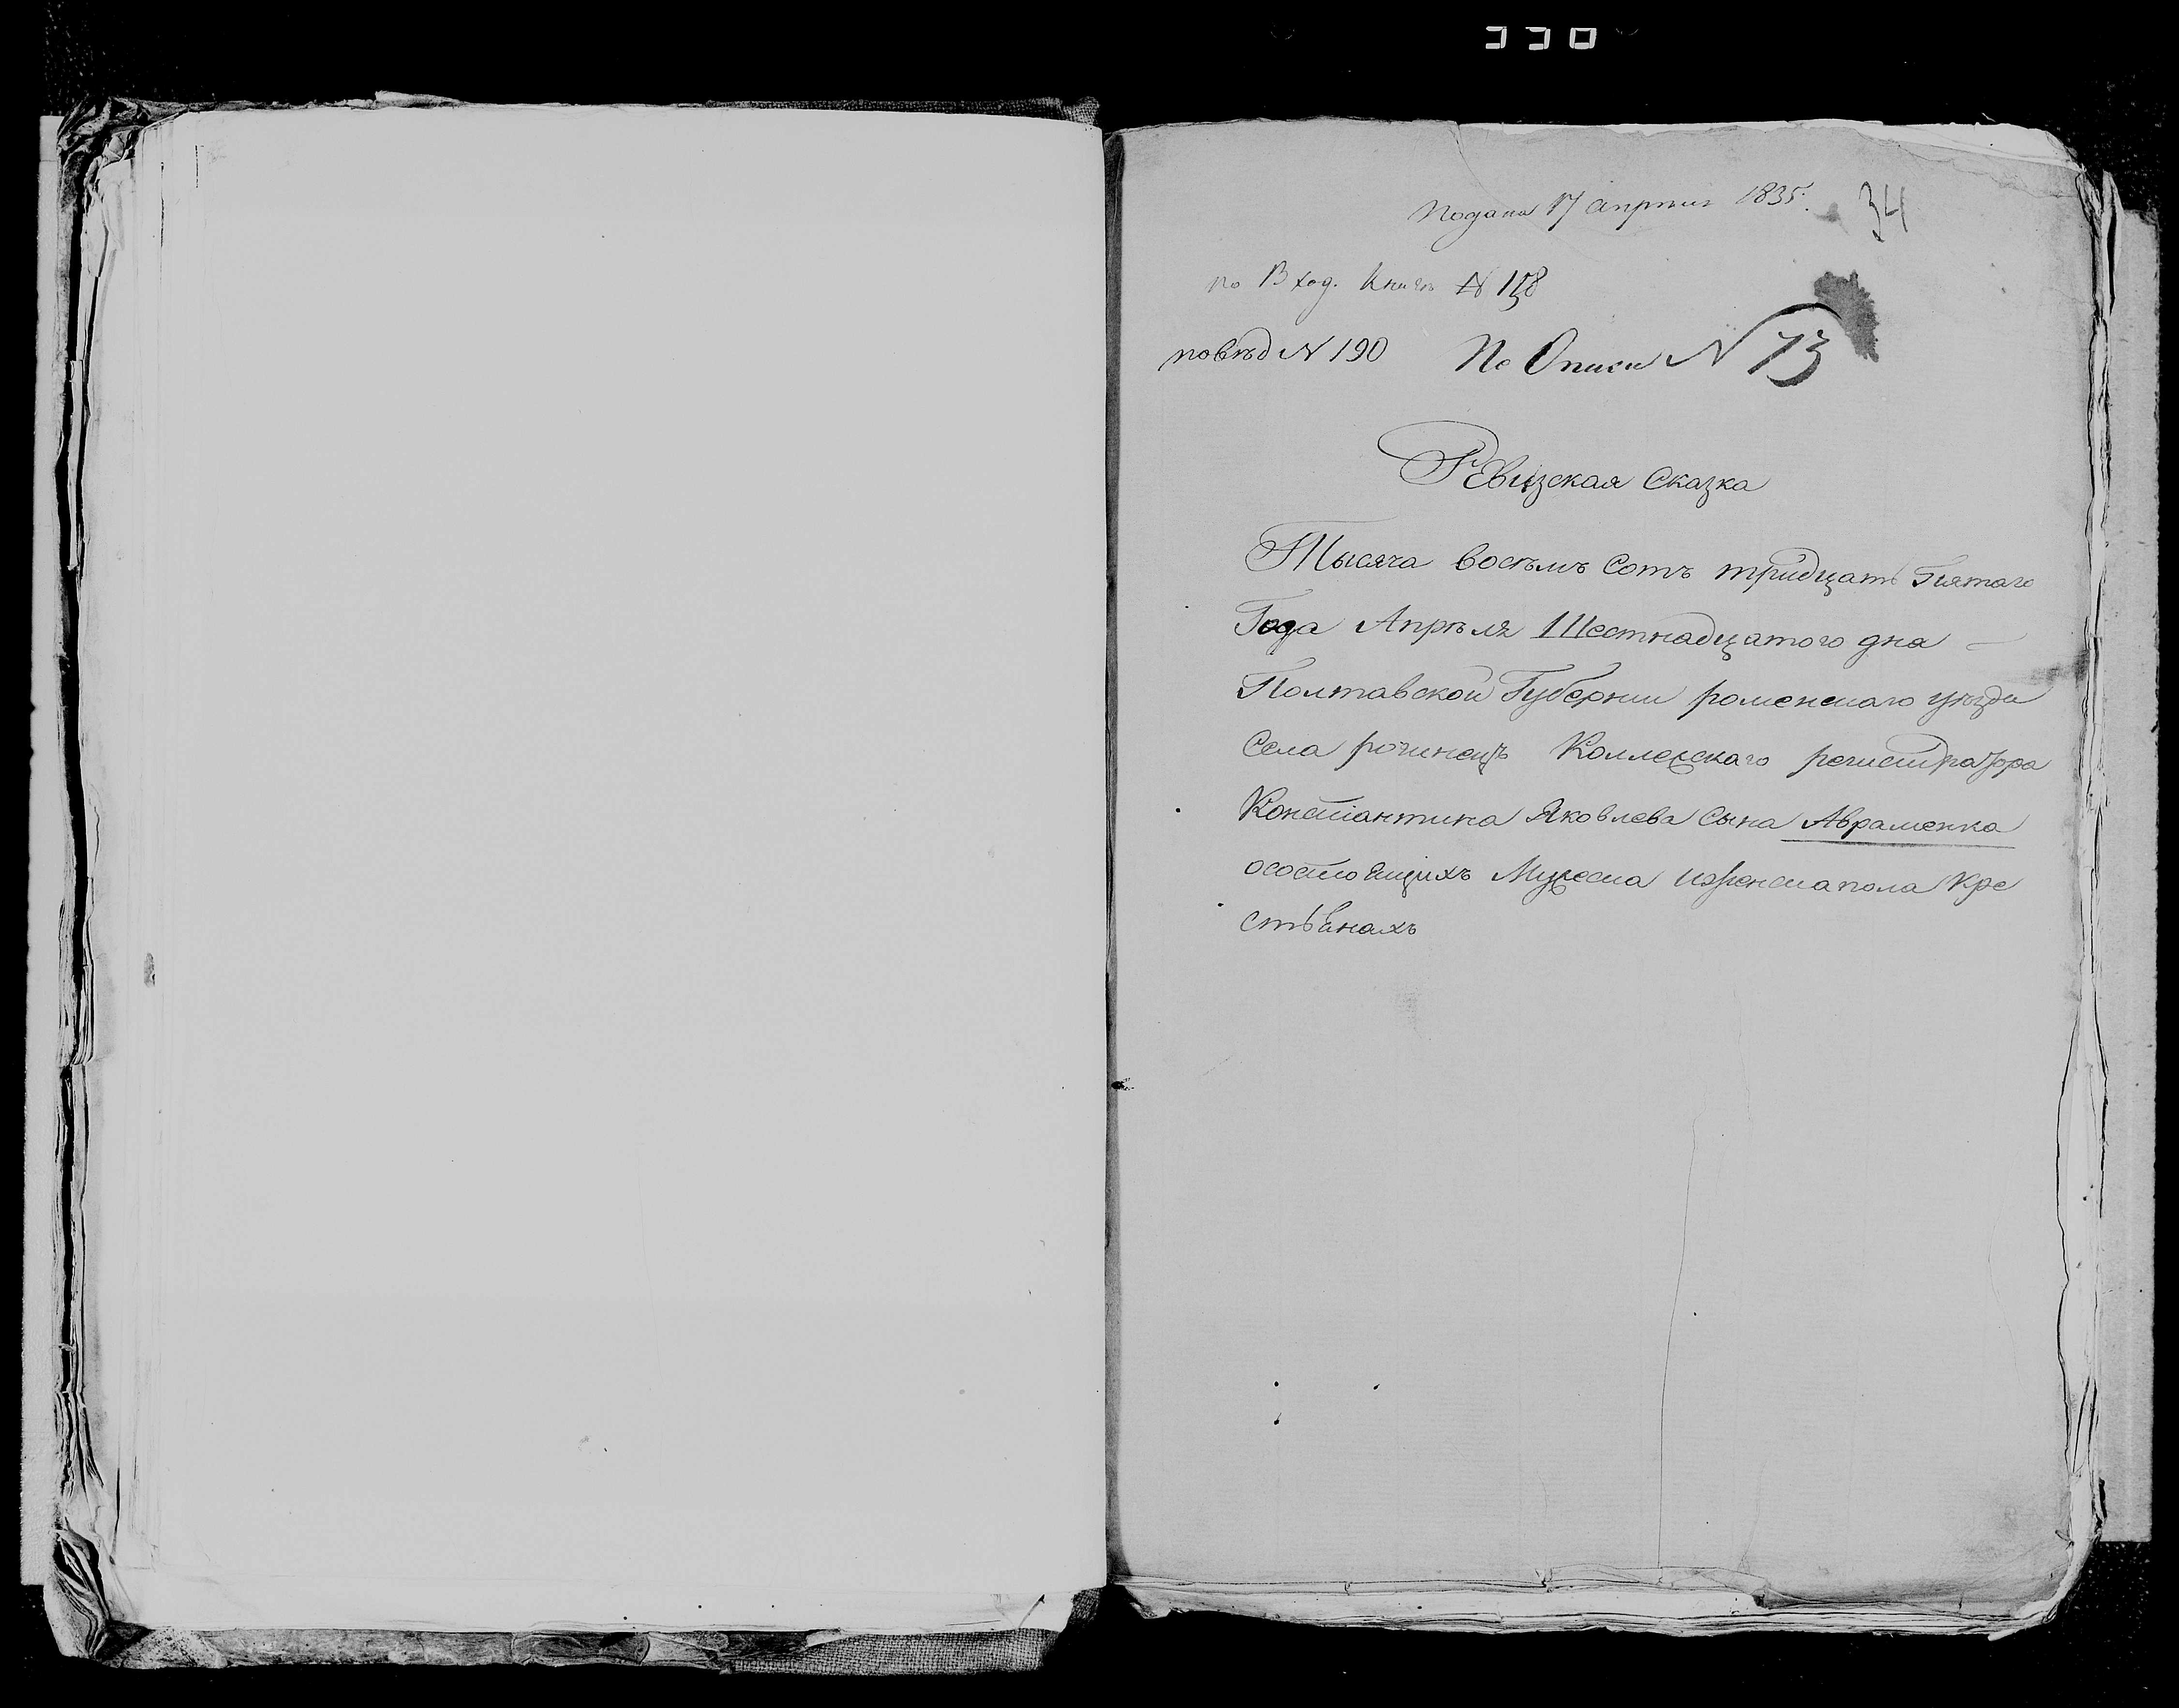 330
Подана 17 апреля 1835. 34
по Вход. Книге № 158
по вѣд № 190 По Описи № 73
Ревизская Сказка
Тысяча восѣмъ Сотъ тридцать Пятаго
Года Апрѣля Шестнадцатого дня
Полтавской Губернии роменскаго уѣзда
Села рочинецъ Коллежскаго регистратора
Констіантина Яковлева Сына Авраменка
осостоящихъ Мужеска иженска пола Кре
стьянахъ